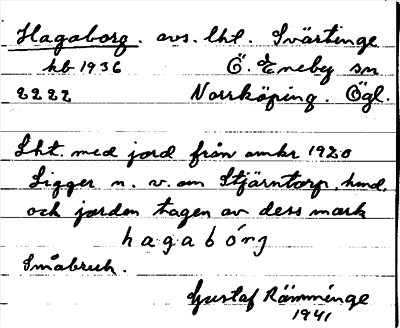 Hagaborg. avs. lht. Svärtinge
kb 1936 Ö. Eneby sn
2222 Norrköping. Ögl.
Lht. med jord från omkr 1920
Ligger n. v. om Stjärntorp, hmd,
och jorden tagen av dess mark
hagabórj
Småbruk.
Gustaf Rämminge
1941